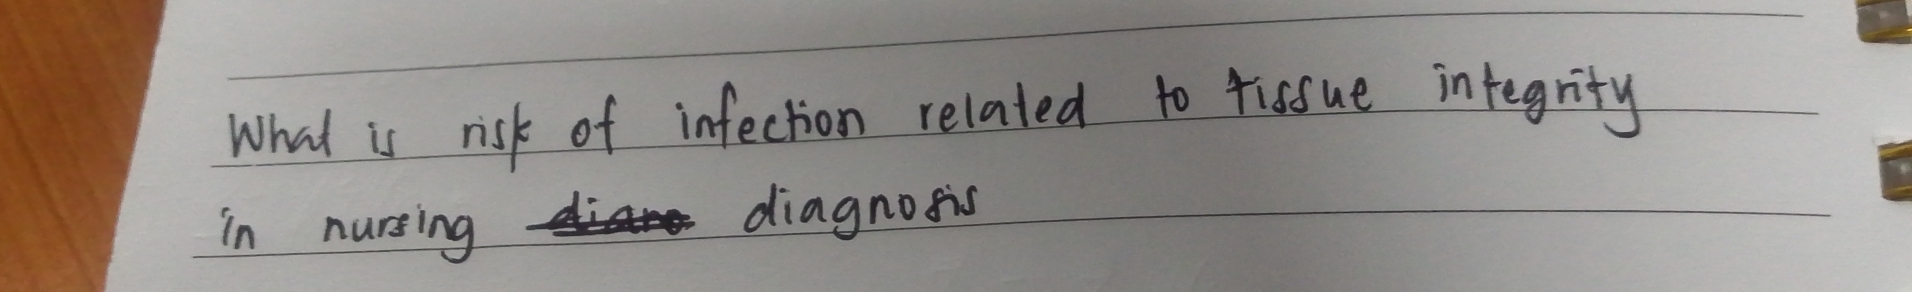 What is risk of infection related to tissue integrity
in nursing diagnosis